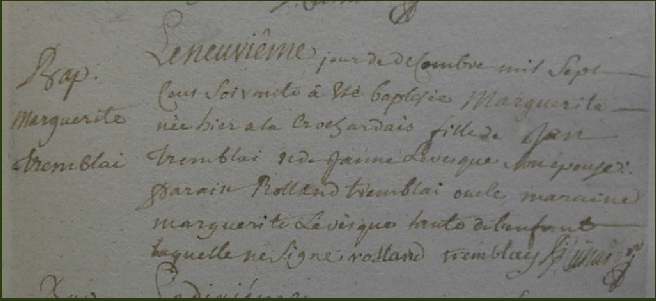 Bap.
Marguerite
tremblai
Le neuviême jour de decembre mil Sept
Cent Soixante à été baptisée Marguerite
née hier a la Crochardais fille de Jan
tremblai & de Janne Levesque son epouse:
parain Rolland tremblai oncle, maraine
marguerite Levêsque tante de l'enfant
laquelle ne Signe. rolland tremblay